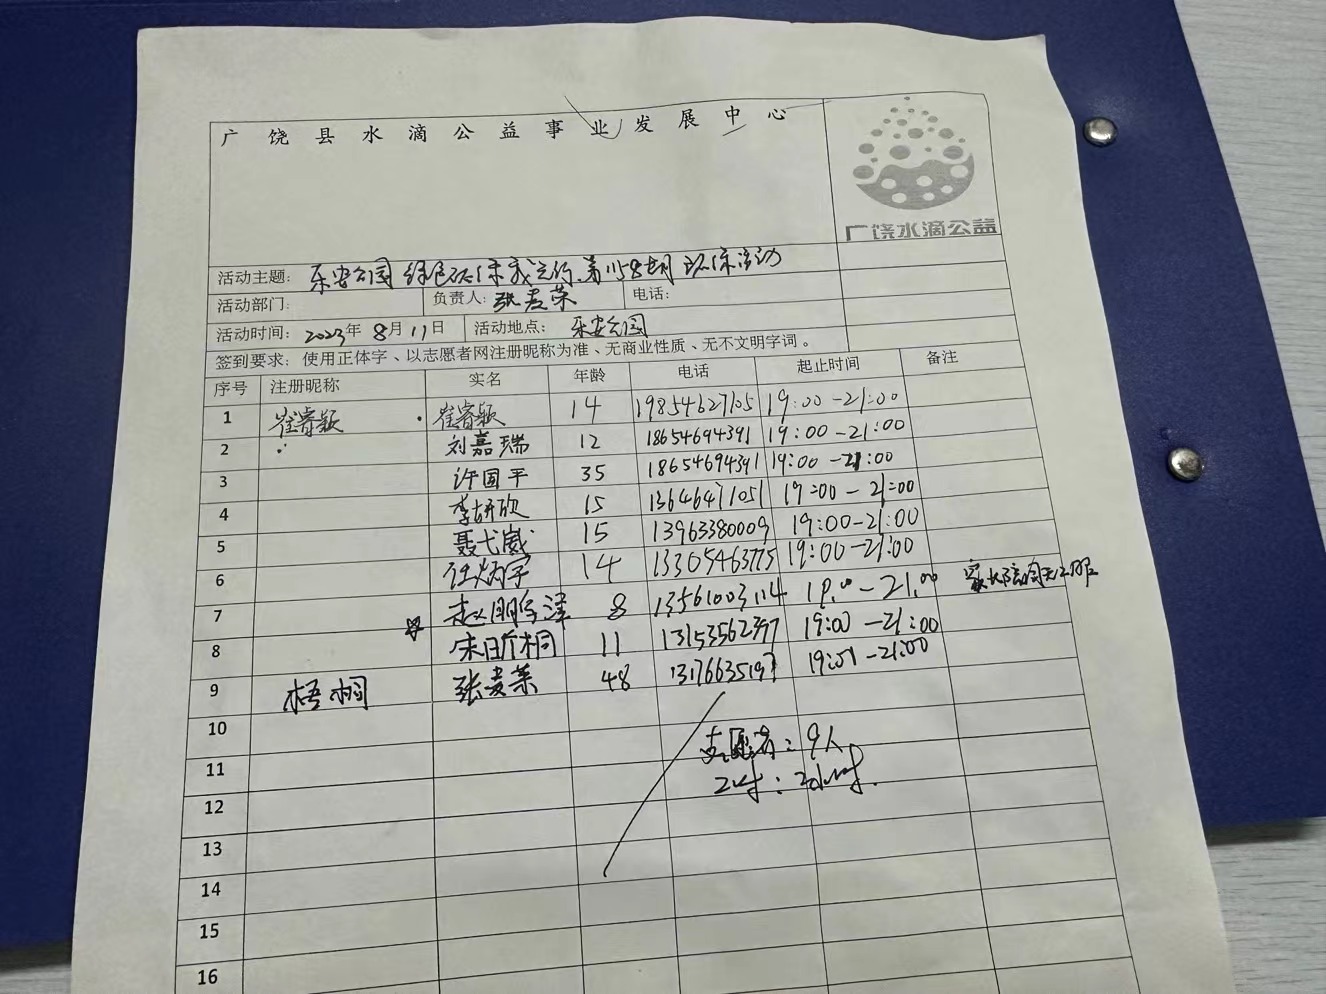 广饶县水滴公益事业发展中心
广饶水滴公益
活动主题：乐安公园绿色环保我先行.第1158期环保活动
活动部门： 负责人：张麦荣 电话：
活动时间：2023年8月11日 活动地点：乐安公园
签到要求：使用正体字、以志愿者网注册昵称为准、无商业性质、无不文明字词。
序号 注册昵称 实名 年龄 电话 起止时间 备注
1 崔睿颖 崔睿颖 14 19854627105 19:00-21:00
2 刘嘉瑞 12 18654694391 19:00-21:00
3 许国平 35 18654694391 19:00-21:00
4 李妍欣 15 13646471051 19:00-21:00
5 聂弋崴 15 13963380009 19:00-21:00
6 任炳宇 14 13305463775 19:00-21:00
7 赵鹏泽 8 13561003114 19:00-21:00
8 宋昕桐 11 13153562397 19:00-21:00
9 梧桐 张麦荣 48 13176635197 19:01-21:00
10
志愿者：9人
11
工时：2小时.
12
13
14
15
16